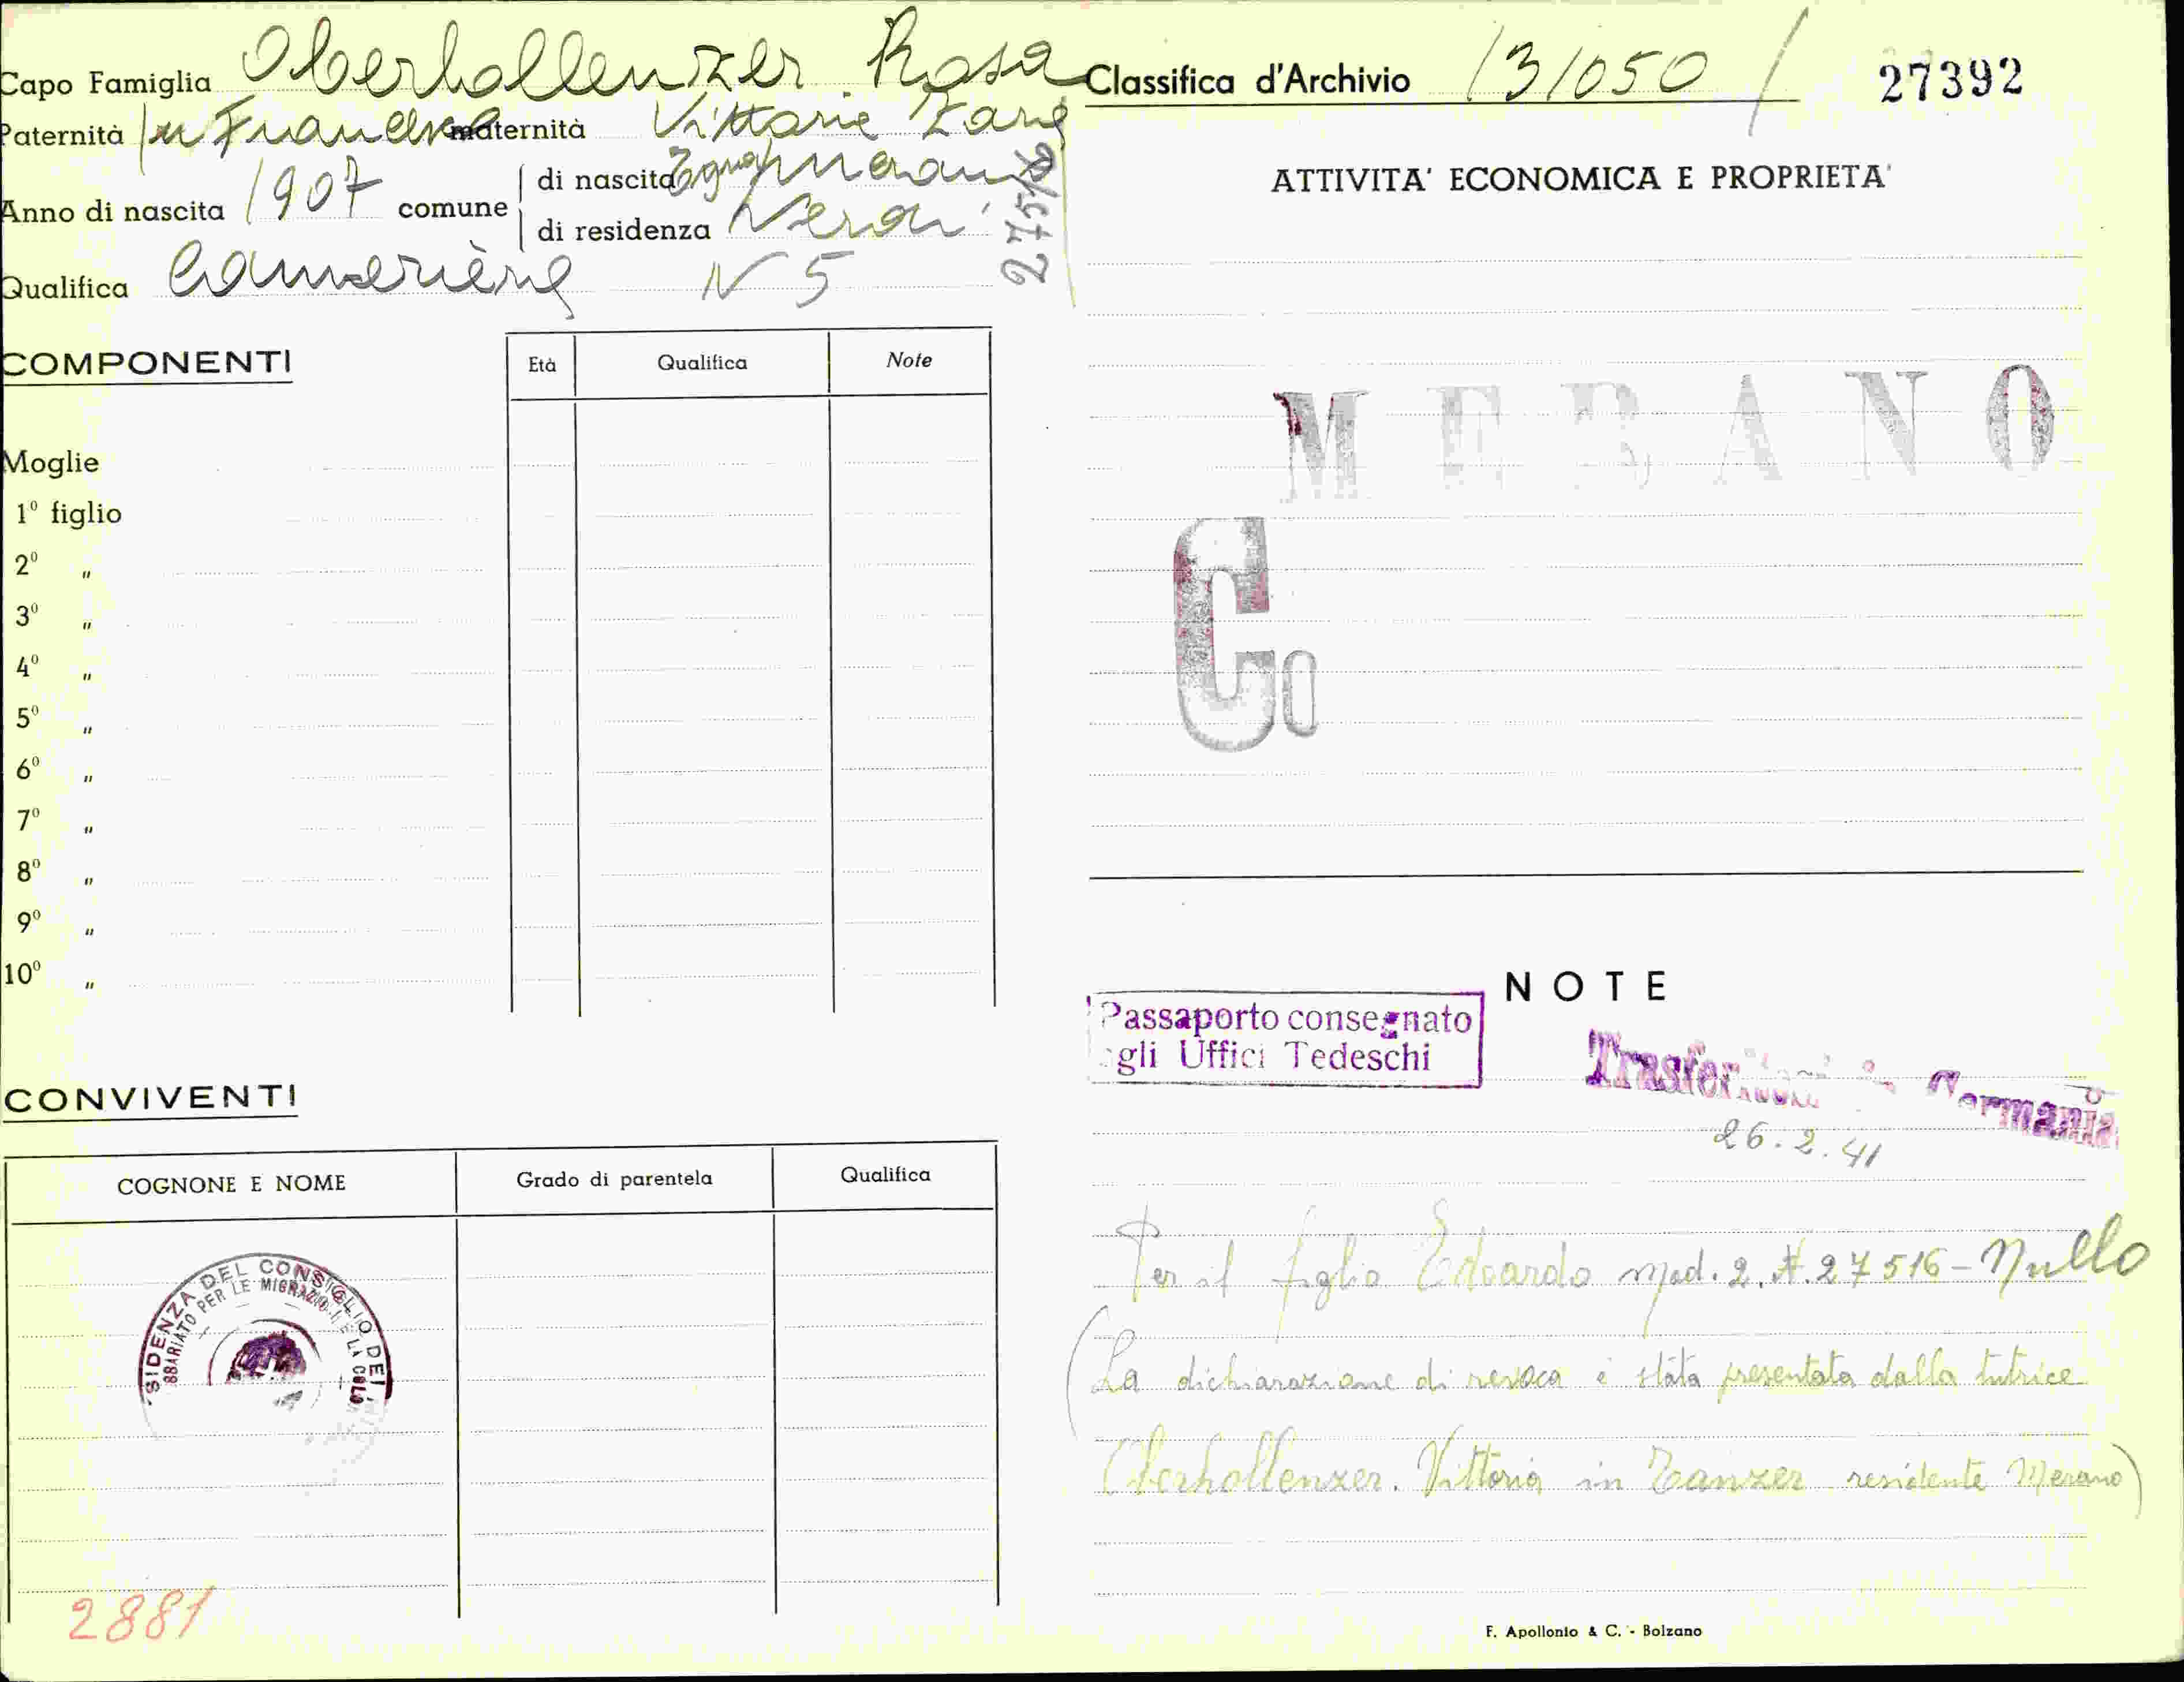 Capo Famiglia Oberhollenzer Rosa
Paternità fu Francesco maternità Vittoria
Anno di nascita 1907 comune di nascita Merano
di residenza
Qualifica Cameriera N 5
COMPONENTI
Età Qualifica Note
Moglie
1º figlio
2º "
3º "
4º "
5º "
6º "
7º "
8º "
9º "
10º "
CONVIVENTI
COGNONE E NOME Grado di parentela Qualifica
SIDENZA DEL CONSIGLIO DEI
SSARIATO PER LE MIGRAZIONI E LA COLO
2881
Classifica d'Archivio 13/050 / 27392
ATTIVITA' ECONOMICA E PROPRIETA'
MERANO
Co
NOTE
Passaporto consegnato
agli Uffici Tedeschi
Germania
26.2.41
Per il figlio Edoardo Mod. 2. N. 27516 - Nullo
(La dichiarazione di revoca è stata presentata dalla tutrice
Oberhollenzer. Vittoria in Tanzer residente Merano)
F. Apollonio & C. - Bolzano